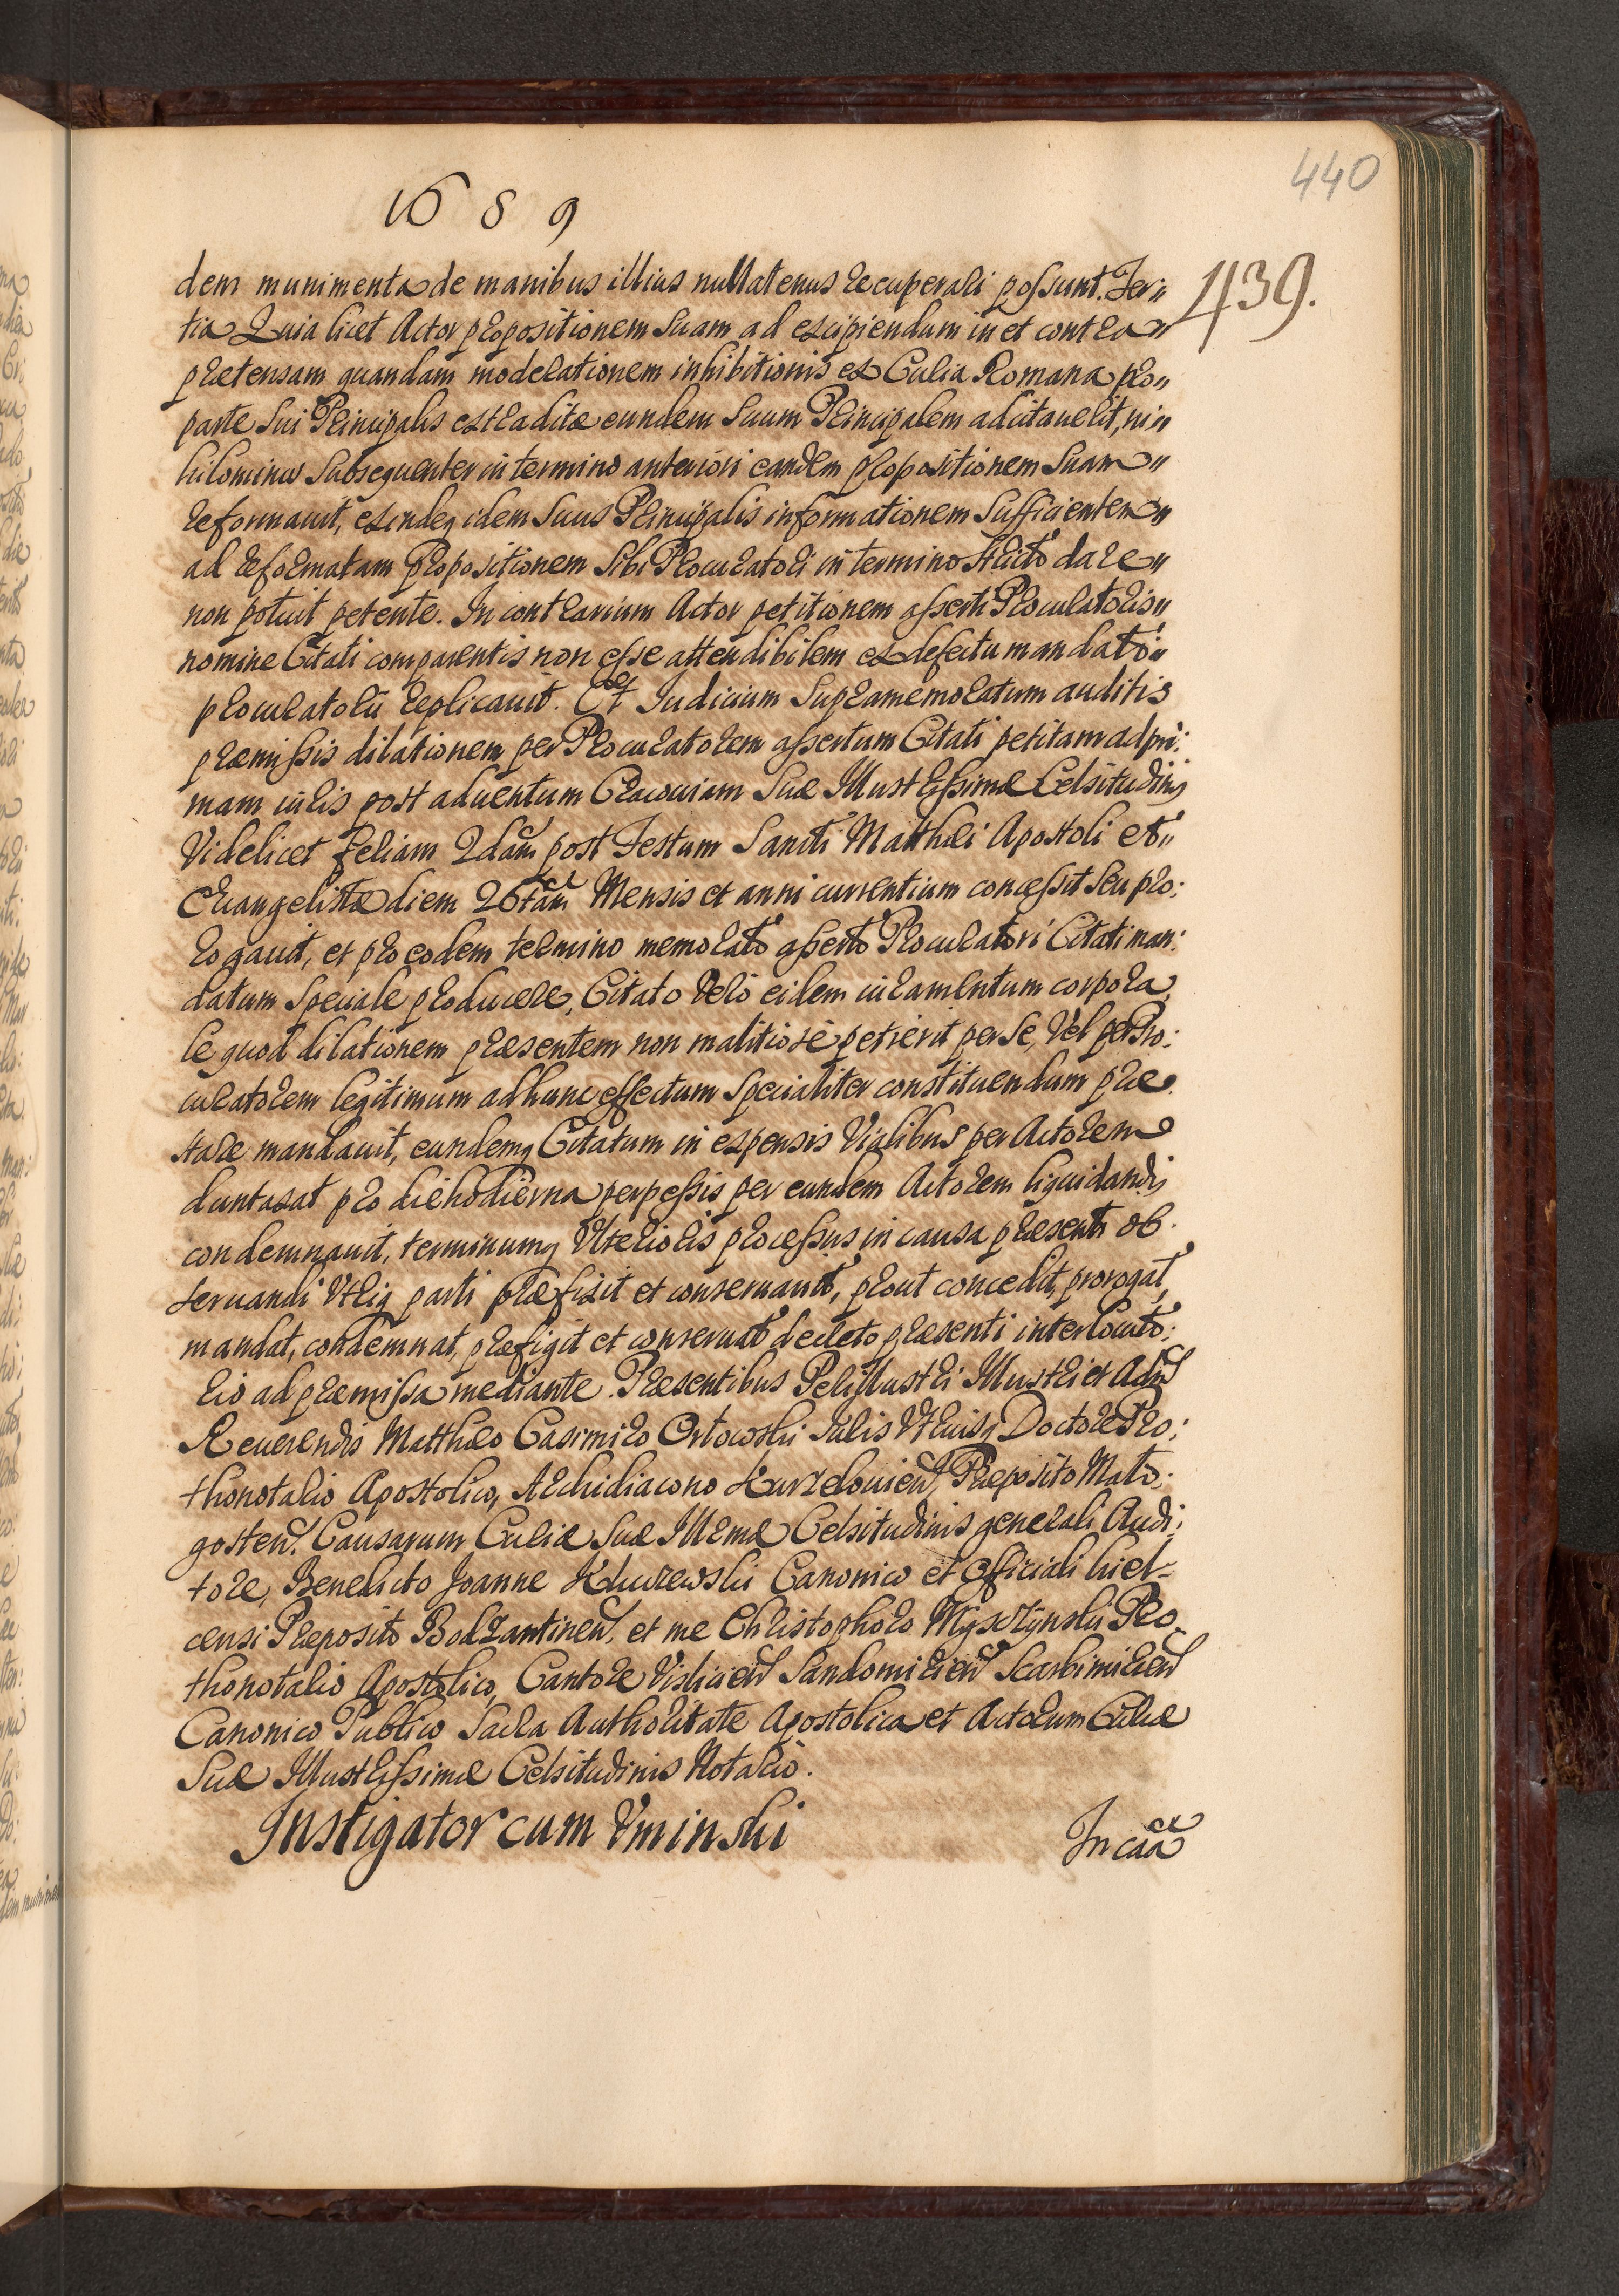 440
1689
439.
dem munimenta de manibus illius nullatenus recuperari possunt. Ter„
tia Quia licet Actor propositionem suam ad excipiendum in et contra„
prætensam quandam moderationem inhibitionis ex Curia Romana pro„
parte sui Principalis extraditæ eundem suum Principalem adcitauerit, ni„
hilominus subsequenter in termino anteriori eandem propositionem suam„
reformauit, exindeq idem suus Principalis informationem sufficientem„
ad reformatam propositionem sibi Procuratori in termino stricto dare„
non potuit petente. In contrarium Actor petitionem asserti Procuratoris„
nomine Citati comparentis non esse attendibilem ex defectu mandati„
procuratorii replicauit. Et Iudicium supramemoratum auditis
præmissis dilationem per Procuratorem assertum Citati petitam ad pri:
mam iuris post aduentum Cracouiam Suæ Illustrissimæ Celsitudinis
Videlicet feriam 2dam post Festum Sancti Matthæi Apostoli et„
Euangelistæ diem 26tam Mensis et anni currentium concessit seu pro:
rogauit, et pro eodem termino memorato asserto Procuratori Citati man:
datum speciale producere, Citato vero eidem iuramentum corpora
le quod dilationem præsentem non malitiose petierit per se, vel per Pro:
curatorem legitimum ad hunc effectum specialiter constituendum præ
stare mandauit, eundemq Citatum in expensis Vialibus per Actorem
duntaxat pro die hodierna perpessis per eundem Actorem liquidandis
condemnauit, terminumq Vlterioris processus in causa præsenti ob
seruandi Vtriq parti præfixit et conseruauit, prout concedit, prorogat,
mandat, condemnat, præfigit et conseruat decreto præsenti interlocuto:
rio ad præmissa mediante. Præsentibus Perillustri Illustri et Adm
Reuerendis Matthæo Casimiro Ortowski Iuris Vtriusq Doctore Pro:
thonotario Apostolico, Archidiacono Kurzelouien, Præposito Mało:
gosten. Causarum Curiæ Suæ Illmæ Celsitudinis generali Audi:
tore, Benedicto Joanne Khurewski Canonico et Officiali Kiel-
censi Præposito Bodzantinen, et me Christophoro Myszynski Pro
thonotario Apostolico, Cantore Vislicien Sandomirien Scarbimirien
Canonico Publico Sacra Authoritate Apostolica et Actorum Curiæ
Suæ Illustrissimæ Celsitudinis Notario.
Instigator cum Vminski
In caâ